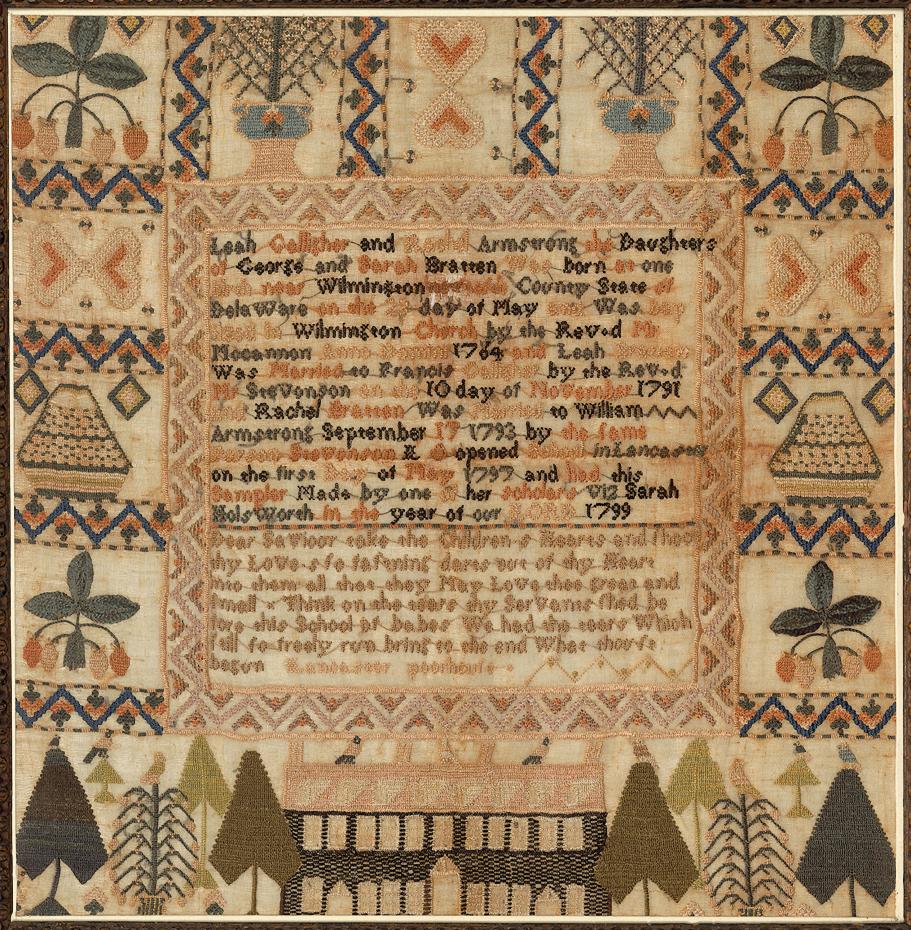 Leah Galligher and Rachel Armstrong the Daughters
of George and Sarah Bratten Was born at one
near Wilmington County State of
DelaWare on the day of May and Was
in Wilmington Church by the Rev.d Mr
Mccannon Anno Domini 1764 and Leah Bratten
Was Married to Francis Galligher by the Rev.d
Mr StevOnson on the 10 day of November 1791
And Rachel Bratten Was Married to William
Armstrong September 17 1793 by the same
Parson Stevenson & opened School in Lancaster
on the first Day of May 1797 and had this
Sampler Made by one of her scholars Viz Sarah
HolsWorth in the year of our LORD 1799
Dear Saviour take the Children,s Hearts and
thy Love,s so fast'ning darts out of thy Heart
into them all that they May Love thee great and
small Think on the tears thy Servants shed be
fore this School of babes We had the tears Which
fall so freely run bring to the end What thou'st
begun Lancaster poorhouse